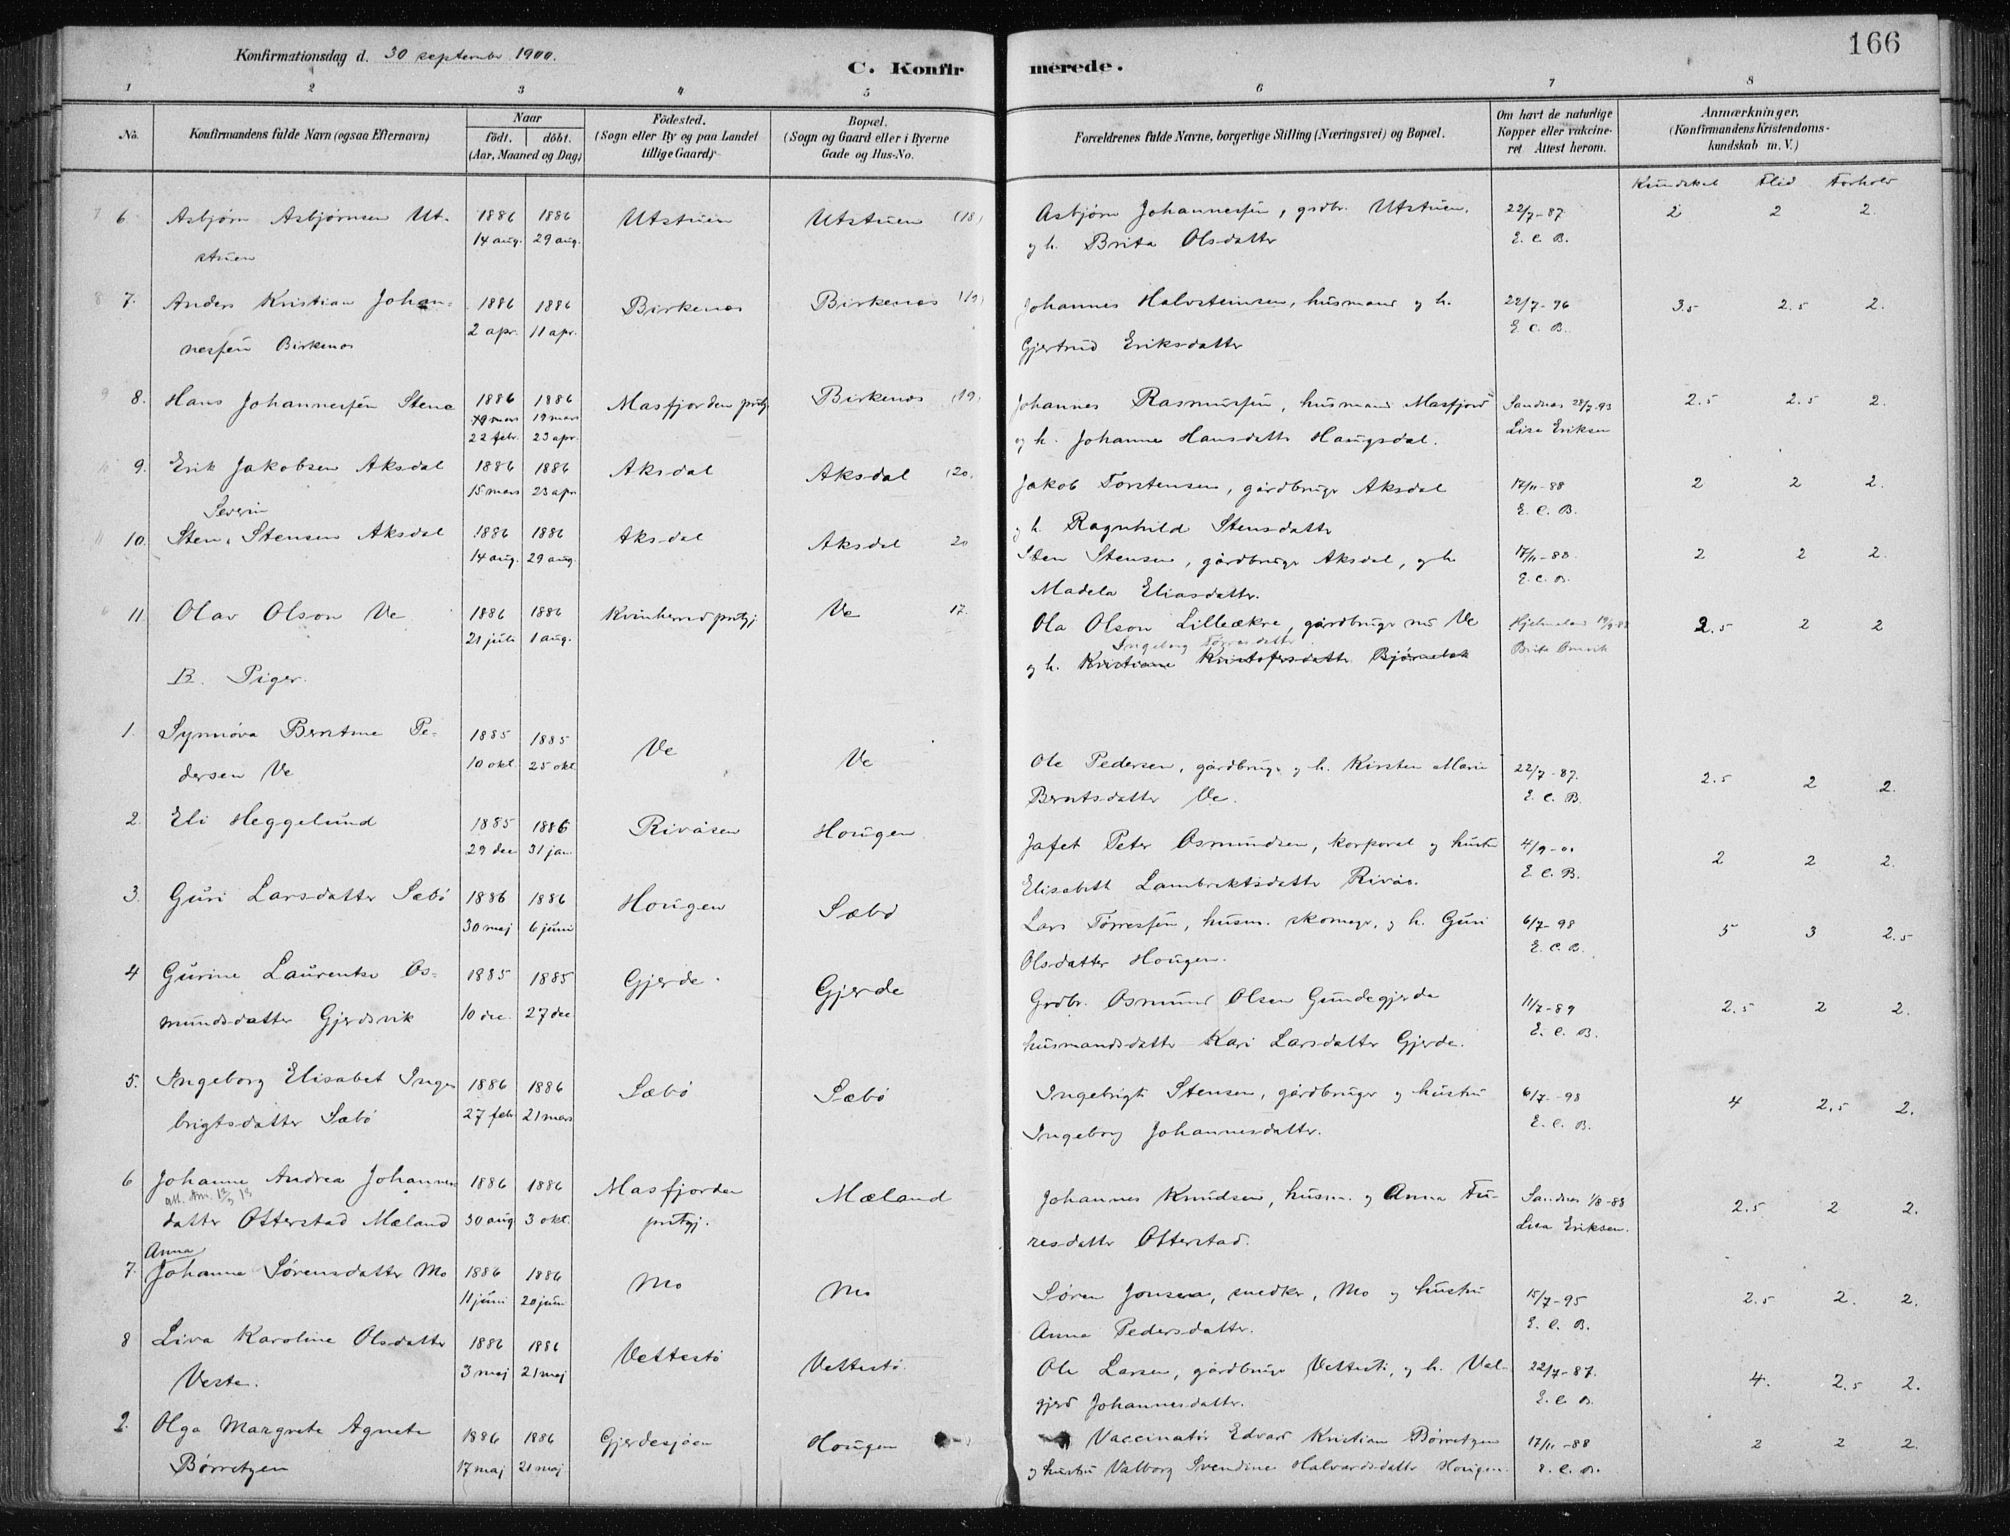 166
Konfirmationsdag d. 30 september 1900.
C. Konfir merede.
1 2 3 4 5 6 7 8
No. Konfirmandens fulde Navn (ogsaa Efternavn) Naar født. døbt. (Aar, Maaned og Dag) Fødested. (Sogn eller By og paa Landet tillige Gaard) Bopæl. (Sogn og Gaard eller i Byerne Gade og Hus-No. Forældrenes fulde Navne, borgerlige Stilling (Næringsvei) og Bopæl. Om havt de naturlige Kopper eller vakcineret Attest herom. Anmærkninger. (Konfirmandens Kristendomskundskab m. V.)
Kundskab Flid Forhold
7 6 Asbjørn Asbjørnsen Ut- 1886 1886 Utstuen Utstuen (18) Asbjørn Johannesson, grdbr. Utstuen, 22/7-87 2 2 2.
stuen 14 aug. 29 aug. og h. Brita Olsdatter E. C. B.
8 7. Anders Kristian Johan- 1886 1886 Birkenes Birkenes (19) Johannes Halvsteinsen, husmand og h. 22/7-96 3.5 2.5 2.
nessen Birkenes 2 apr. 11 apr. Gjertrud Eriksdatter E. C. B.
9 8. Hans Johannessen Stene 1886 1886 Masfjorden prstgj Birkenes (19) Johannes Rasmussen, husmand Masfjord Sandnes 28/7-93 2.5 2.5 2.
19 mars 19 mars
22 febr. 23 apr. og h. Johanne Hansdatter Haugsdal. Lise Eriksen
10 9. Erik Jakobsen Aksdal 1886 1886 Aksdal Aksdal (20. Jakob Torstensen, gårdbruger Aksdal 17/11-88 2 2 2.
15 mars 23 apr og h. Ragnhild Stensdatter E. C. B.
Severin
11 10. Sten Stensen Aksdal 1886 1886 Aksdal Aksdal 20 Sten Stensen, gårdbruger Aksdal, og h. 17/11-88. 2 2 2.
14 aug. 29 aug. Madela Eliasdatter. E. C. B.
6 11. Olav Olson Ve 1886 1886 Kvinherred prstgj Ve 17. Ola Olson Lilleækre, gårdbruger nu Ve Hjelmeland 2.5 2 2
21 juli 1 aug. Ingeborg Tørresdatter
og h. Kristiane Kristofersdatter Bjørnebøk Brita
B. Piger.
1. Synnøva Berntine Pe- 1885 1885 Ve Ve Ole Pedersen, gårdbruger og h. Kirsten Marie 22/7-87. 2.5 2 2.
dersen Ve 10 okt. 25 okt. Berntsdatter Ve. E. C. B.
2. Eli Heggelund 1885 1886 Rivåsen Hougen Jafet Peter Osmundsen, korporal og hustru 4/9-00 2 2 2.
29 dec 31 jan. Elisabeth Lambrektsdatter Rivås. E. C. B.
3. Guri Larsdatter Sæbø 1886 1886 Hougen Sæbø Lars Tørressen, husm. skomager, og h. Guri 6/7-98 5 3 2.5
30 maj 6 juni Olsdatter Hougen. E. C. B.
4 Gurine Laurentse Os- 1885 1885 Gjerde. Gjerde Grdbr. Osmund Olsen Gundegjerde 11/7-89 2.5 2 2.
mundsdatter Gjerdsvik 10 dec. 27 dec husmandsdatter Kari Larsdatter Gjerde. E. C. B.
5. Ingeborg Elisabet Inge- 1886 1886 Sæbø Sæbø Ingebrigt Stensen, gårdbruger og hustru 6/7-98 4 2.5 2.
brigtsdatter Sæbø 27 febr 21 mars Ingeborg Johannesdatter. E. C. B.
6 Johanne Andrea Johannes 1886 1886 Masfjorden Mæland Johannes Knudsen, husm. og Anna Tu- Sandnes 1/8-88 2.5 2 2.
datter Otterstad Mæland 30 aug 3 okt. prstgj. resdatter Otterstad. Lisa Eriksen.
Anna
7. Johanne Sørensdatter Mo 1886 1886 Mo Mo Søren Jonsen, snedker, Mo og hustru 15/7-95 2.5 2. 2.
11 juni 20 juni Anna Pedersdatter. E. C. B.
8 Liva Karoline Olsdatter 1886 1886 Vettestø Vettestø. Ole Larsen, gårdbruger Vettestø, og h. Val- 22/7-87. 4. 2.5 2.
Veste. 3 maj 21 maj gjerd Johannesdatter. E. C. B.
9. Olga Margrete Agnete 1886 1886 Gjerdesjøen Hougen Vaccinatør Edvard Kristian Børretzen 17/11-88 2 2 2.
Børretzen 17 maj 21 maj og hustru Valborg Svendine Halvardsdatter Hougen. E. C. B.